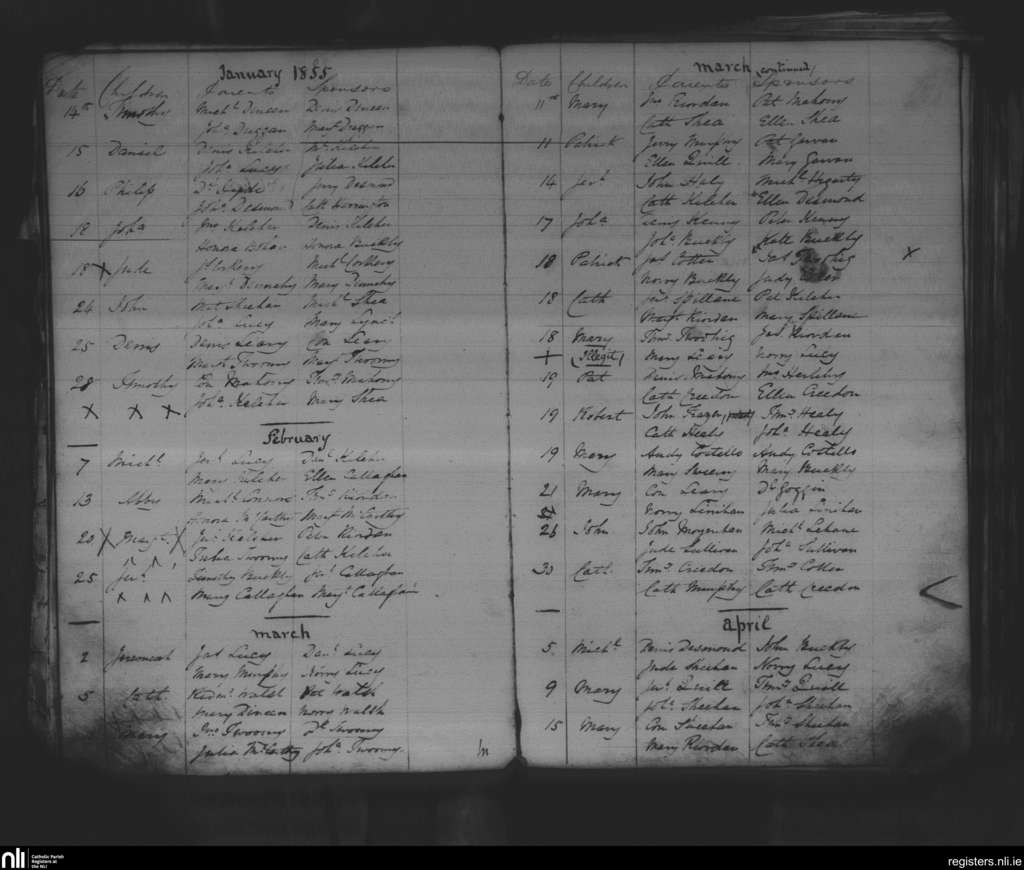 January 1855
Date Children Parents Sponsors
14th Timothy Michl. Dineen Denis Dineen
Joha. Duggan Margt Duggan
15 Daniel Denis Keleher Keleher
Joha. Lucy Julia Keleher
16 Philip Jerry Desmond
Joha. Desmond
18 Joha Jno Keleher Denis Keleher
Honora Honora Buckley
18 X Jude Corkery Michl. Corkery
Margt. Dennehy Mary Dennehy
24 John Mat Sheehan Michl. Shea
Joha. Lucy Mary Lynch
25 Denis Denis Leary Con Leary
Margt Twoomy Margt Twoomy
28 Timothy Con Mahony Thos. Mahony
Joha. Keleher Mary Shea
X X X
February
7 Michl. Jerh. Lucy Danl. Keleher
Mary Keleher Ellen Callaghan
13 Abby Michl. Connors Riordan
Honora McCarthy Margt McCarthy
20 X Margt. X Keleher Riordan
Julia Twoomy Cath Keleher
25 Jerh. Timothy Buckley Jerh. Callaghan
Mary Callaghan Margt. Callaghan
March
2 Jeremiah Jas Lucy Danl. Lucy
Mary Murphy Norry Lucy
5 Cath. Walsh Walsh
Mary Dineen Norry Walsh
Mary Jno. Twoomy Twoomy
Julia McCarthy Joha. Twoomy
March continued
Date Children Parents Sponsors
11th Mary Jno Riordan Pat Mahony
Cath Shea Ellen Shea
11 Patrick Jerry Murphy Pat
Ellen Quill Mary
14 Jerh. John Haly Michl. Hegarty
Cath Keleher Ellen Desmond
17 Joha. Kenny Peter Kenny
Joha. Buckly Kate Buckley
18 Patrick Jas Cotter X
Norry Buckley Judy
18 Cath Spillane Pat Keleher
Margt Riordan Mary Spillane
18 Mary Riordan
+ (Illegit) Mary Leary Norry Lucy
19 Pat Denis Mahony Jno Herlihy
Cath Creedon Ellen Creedon
19 Robert John Frazer Thms. Healy
Cath Healy Joha. Healy
19 Mary Andy Costello Andy Costello
Mary Sweeny Mary Buckley
21 Mary Con Leary Dl. Goggin
Norry Linihan Julia Linihan
26 John John Moynihan Michl. Lehane
Jude Sullivan Joha. Sullivan
30 Cath. Thms. Creedon Thms. Cotter
Cath Murphy Cath Creedon
April
5. Michl. Denis Desmond John Buckley
Jude Sheehan Norry Lucy
9 Mary Quill Thms. Quill
Joha. Sheehan Joha. Sheehan
15 Mary Con Sheehan Thms. Sheehan
Mary Riordan Cath Shea
nli Catholic Parish
Registers at
the NLI
registers.nli.ie